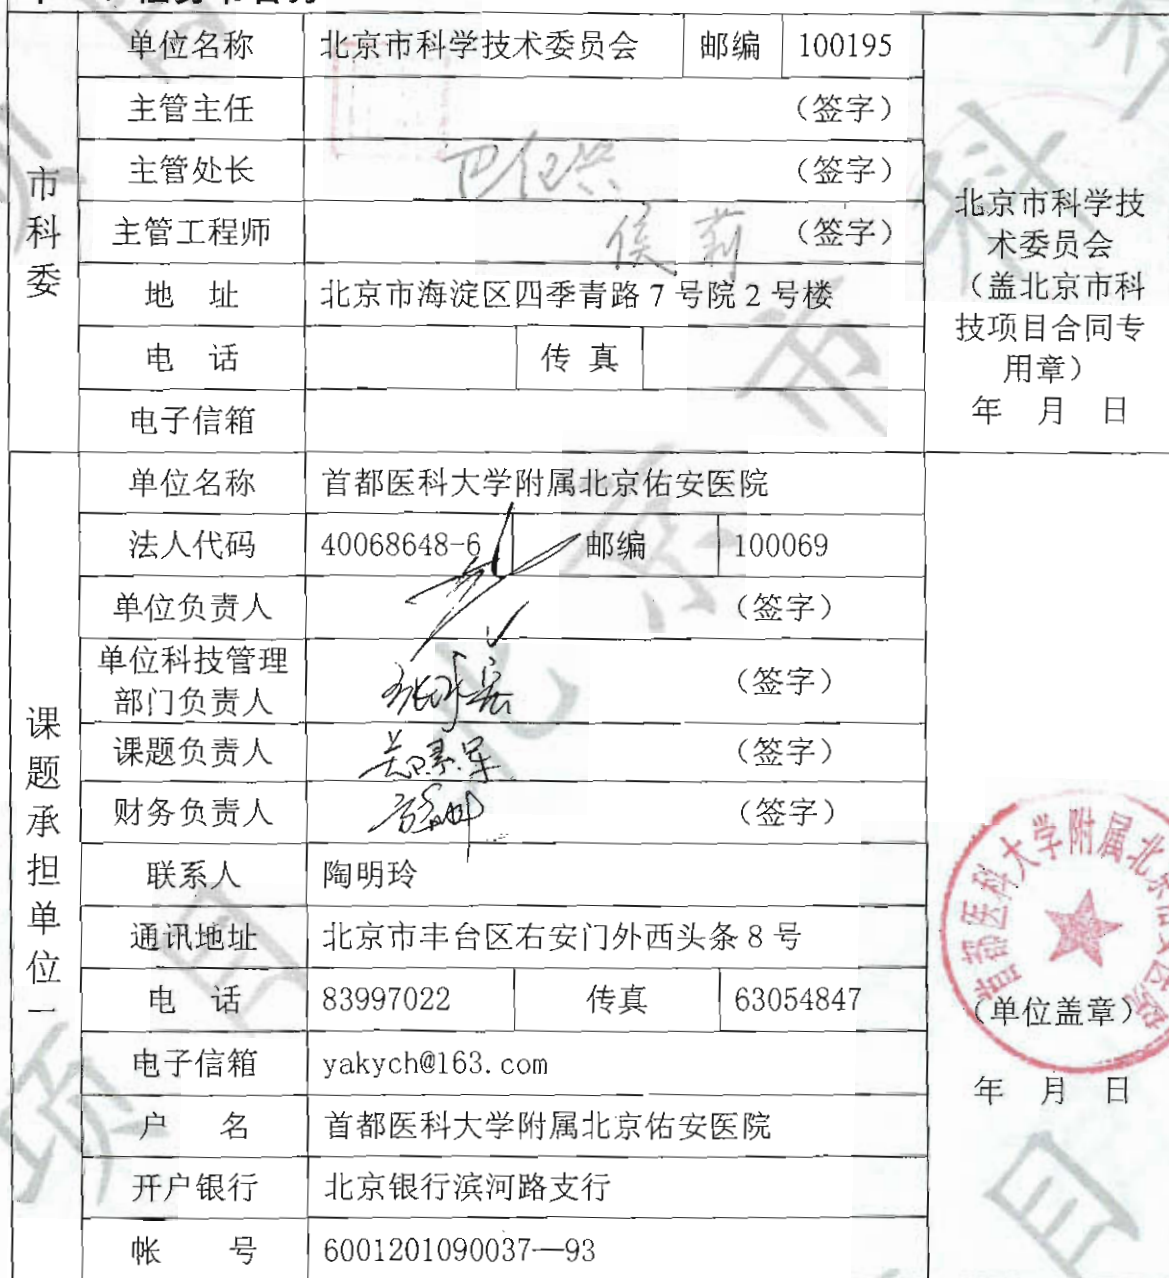 单位名称 北京市科学技术委员会 邮编 100195
主管主任 （签字）
主管处长 （签字）
主管工程师 侯莉 （签字）
地 址 北京市海淀区四季青路7号院2号楼
电 话 传 真
电子信箱
市科委
北京市科学技
术委员会
（盖北京市科
技项目合同专
用章）
年 月 日
单位名称 首都医科大学附属北京佑安医院
法人代码 40068648-6 邮编 100069
单位负责人 （签字）
单位科技管理
部门负责人 （签字）
课题负责人 （签字）
财务负责人 （签字）
联系人 陶明玲
通讯地址 北京市丰台区右安门外西头条8号
电 话 83997022 传真 63054847
电子信箱 yakych@163.com
户 名 首都医科大学附属北京佑安医院
开户银行 北京银行滨河路支行
帐 号 6001201090037—93
课题承担单位一
首都医科大学附属北
（单位盖章）
年 月 日
北京市科
项目